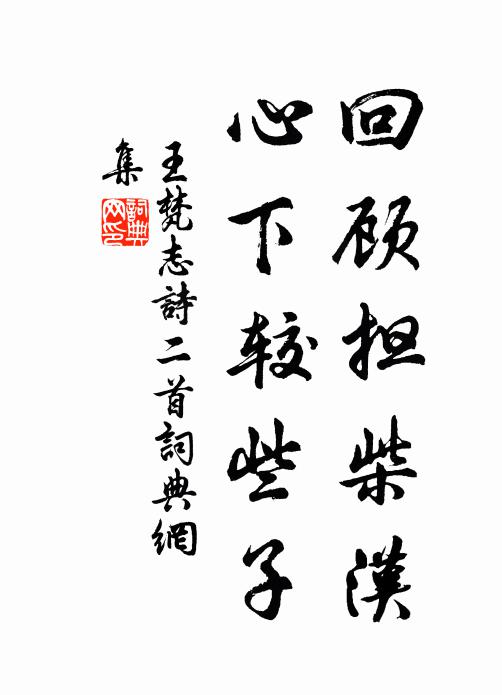 回顾担柴漢
心下较些子
王梵志詩二首詞典網
集
詞典网印